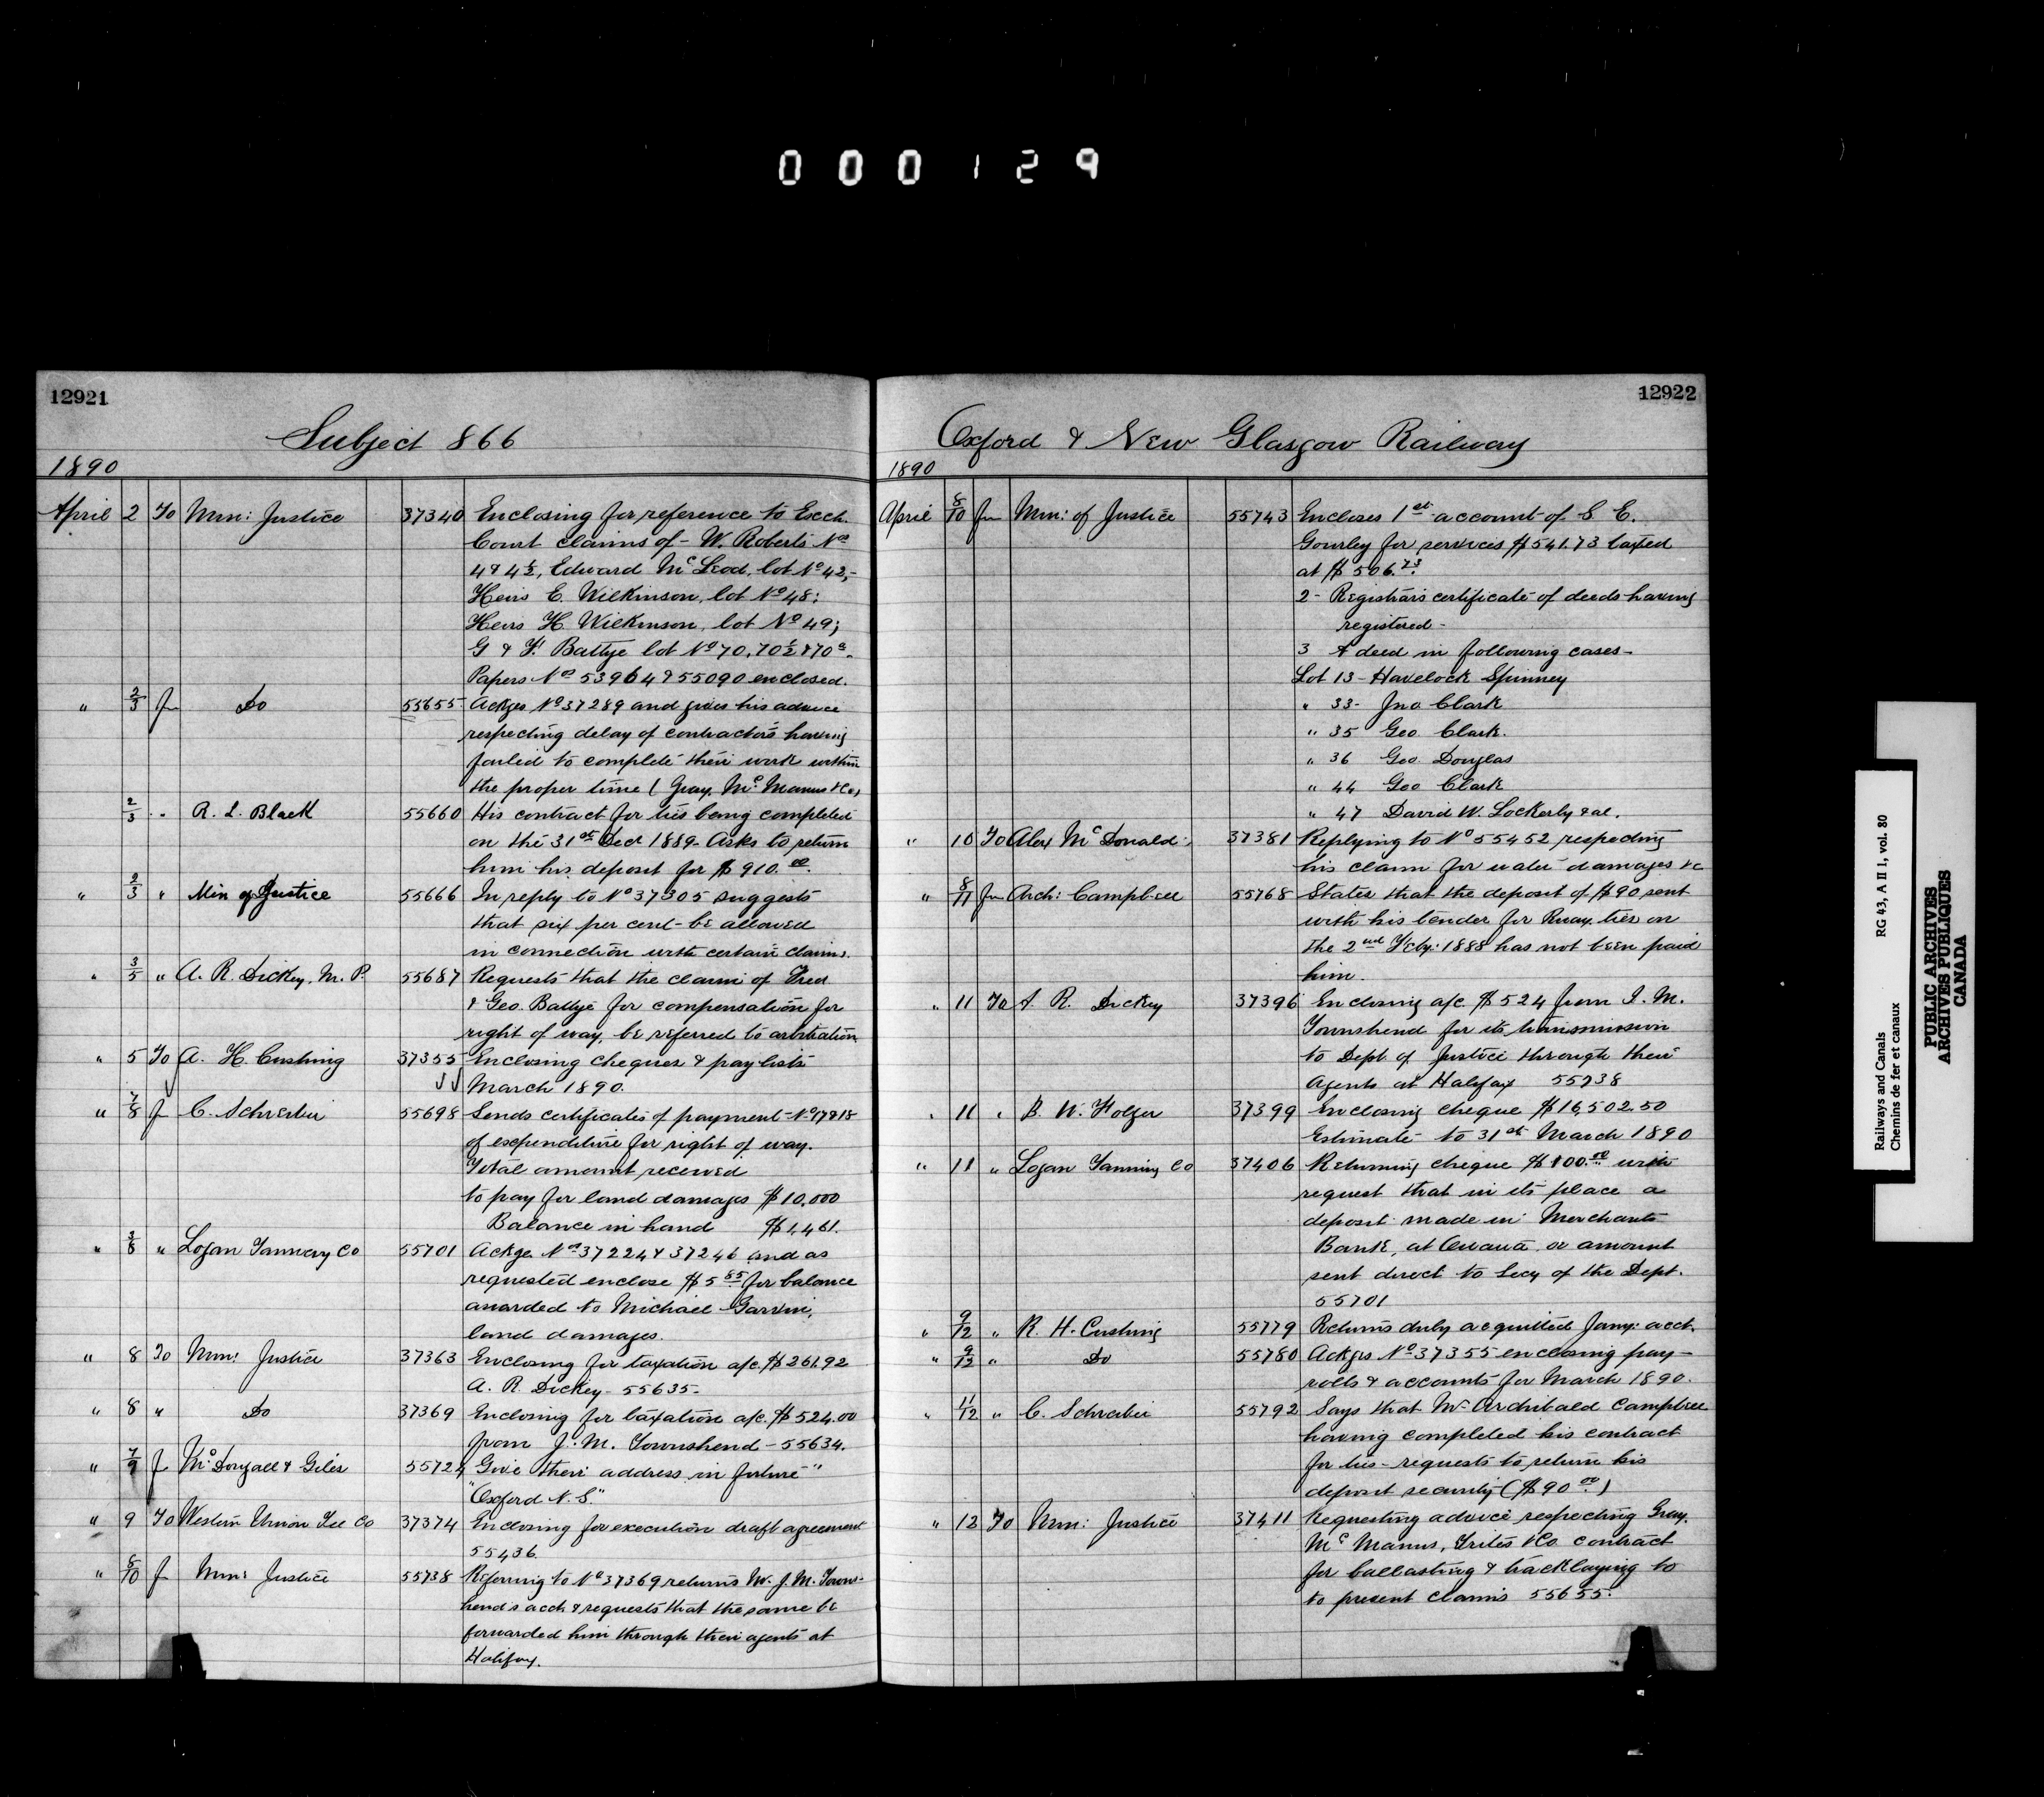 000129
12921
Subject 866
1890
April 2 To Min: Justice 37340 Enclosing for reference to Exch.
Court claims of - W. Roberts Nos
4 & 4½, Edward McLeod, lot No 42,-
Heirs E. Wilkinson, lot No 48;
Heirs H. Wilkinson, lot No 49;
G & F. Battye lot No 70, 70½ & 70a.
Papers Nos 53964 & 55090 enclosed.
" 2/3 f Do 55655 Ackges No 37289 and gives his advice
respecting delay of contractors having
failed to complete their work within
the proper time (Gray, McManus & Co)
2/3 " R. L. Black 55660 His contract for ties being completed
on the 31st Decr 1889 - Asks to return
him his deposit for $910.00.
" 2/3 " Min of Justice 55666 In reply to No 37305 suggests
that six per cent be allowed
in connection with certain claims.
" 3/5 " A. R. Dickey, M. P. 55687 Requests that the claim of Fred
& Geo. Battye for compensation for
right of way, be referred to arbitration
" 5 To A. H. Cushing 37355 Enclosing cheques & paylists
March 1890.
" 7/8 f C. Schreiber 55698 Sends certificates of payment -
of expenditure for right of way.
Total amount received
to pay for land damages $10,000
Balance in hand $1,461.
" 3/8 " Logan Tannery Co 55701 Ackge Nos 37224 & 37246 and as
requested enclose $5 85 for balance
awarded to Michael Garvin,
land damages.
" 8 To Min: Justice 37363 Enclosing for taxation a/c. $261.92
A. R. Dickey - 55635 -
" 8 " Do 37369 Enclosing for taxation a/c. $524.00
from J. M. Townshend - 55634.
" 7/9 f McDougall & Giles 55724 Give their address in future "
"Oxford N. S."
" 9 To Western Union Tel Co 37374 Enclosing for execution draft agreement
55436.
" 8/10 f Min: Justice 55738 Referring to No 37369 returns Mr. J. M. Towns-
hend's acct & requests that the same be
forwarded him through their agents at
Halifax.
12922
Oxford & New Glasgow Railway
1890
April 8/10 fm Min: of Justice 55743 Encloses 1st account of S. E.
Gourley for services $541.73 taxed
at $506.73.
2 - Registrar's certificate of deeds having
registered -
3 A deed in following cases -
Lot 13 - Havelock Spinney
" 33 - Jno Clark
" 35 Geo Clark.
" 36 Geo Douglas
" 44 Geo Clark
" 47 David W. Lockerby & al.
" 10 To Alex McDonald 37381 Replying to No 55452 respecting
his claim for water damages &c
" 8/11 fm Arch: Campbell 55768 States that the deposit of $90 sent
with his tender for Rway. ties on
the 2nd Feby: 1888 has not been paid
him.
" 11 To A. R. Dickey 37396 Enclosing a/c. $524 from J. M.
Townshend for its transmission
to Dept. of Justice through their
Agents at Halifax 55738
" 11 " B. W. Folger 37399 Enclosing cheque $16,502.50
Estimate to 31st March 1890
" 11 " Logan Tanning Co 37406 Returning cheque $100.00 with
request that in its place a
deposit made in Merchants
Bank, at Ottawa or amount
sent direct to Secy of the Dept.
55701
" 9/12 " R. H. Cushing 55779 Returns duly acquitted Jany: acct.
" 9/12 " Do 55780 Ackges No 37355 enclosing pay-
rolls & accounts for March 1890.
" 11/12 " C. Schreiber 55792 Says that Mr Archibald Campbell
having completed his contract
for ties - requests to return his
deposit security ($90 00.)
" 12 To Min: Justice 37411 Requesting advice respecting Gray,
McManus, Trites & Co contract
for ballasting & tracklaying to
to present claims 55655.
Railways and Canals
Chemins de fer et canaux
RG 43, A II 1, vol. 80
PUBLIC ARCHIVES
ARCHIVES PUBLIQUES
CANADA